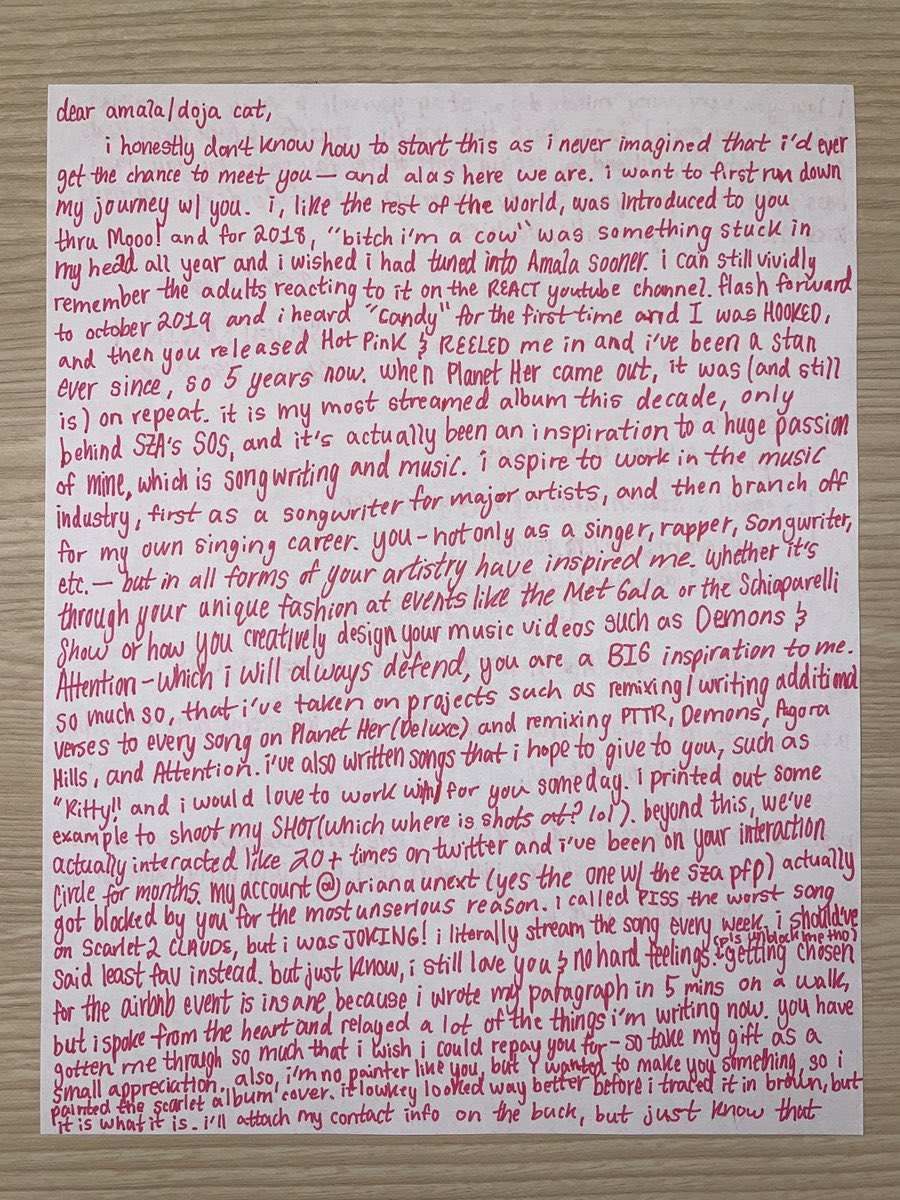 dear amala/doja cat,
i honestly don't know how to start this as i never imagined that i'd ever
get the chance to meet you — and alas here we are. i want to first run down
my journey w/ you. i, like the rest of the world, was introduced to you
thru Mooo! and for 2018, "bitch i'm a cow" was something stuck in
my head all year and i wished i had tuned into Amala sooner. i can still vividly
remember the adults reacting to it on the REACT youtube channel. flash forward
to october 2019 and i heard "Candy" for the first time and I was HOOKED,
and then you released Hot Pink & REELED me in and i've been a stan
ever since, so 5 years now. when Planet Her came out, it was (and still
is) on repeat. it is my most streamed album this decade, only
behind SZA's SOS, and it's actually been an inspiration to a huge passion
of mine, which is songwriting and music. i aspire to work in the music
industry, first as a songwriter for major artists, and then branch off
for my own singing career. you - not only as a singer, rapper, songwriter,
etc. — but in all forms of your artistry have inspired me. whether it's
through your unique fashion at events like the Met Gala or the Schiaparelli
Show or how you creatively design your music videos such as Demons &
Attention - which i will always defend, you are a BIG inspiration to me.
so much so, that i've taken on projects such as remixing/writing additional
verses to every song on Planet Her (Deluxe) and remixing PTTR, Demons, Agora
Hills, and Attention. i've also written songs that i hope to give to you, such as
"Kitty!! and i would love to work with/for you someday. i printed out some
example to shoot my SHOT (which where is shots at? lol). beyond this, we've
actually interacted like 20+ times on twitter and i've been on your interaction
circle for months. my account @arianaunext (yes the one w/ the sza pfp) actually
got blocked by you for the most unserious reason. i called PISS the worst song
on Scarlet 2 CLAUDE, but i was JOKING! i literally stream the song every week. i should've
said least fav instead. but just know, i still love you & no hard feelings! (pls unblock me tho) getting chosen
for the airbnb event is insane because i wrote my paragraph in 5 mins on a walk,
but i spoke from the heart and relayed a lot of the things i'm writing now. you have
gotten me through so much that i wish i could repay you for - so take my gift as a
small appreciation. also, i'm no painter like you, but i wanted to make you something, so i
painted the scarlet album cover. it lowkey looked way better before i traced it in brown, but
it is what it is. i'll attach my contact info on the back, but just know that